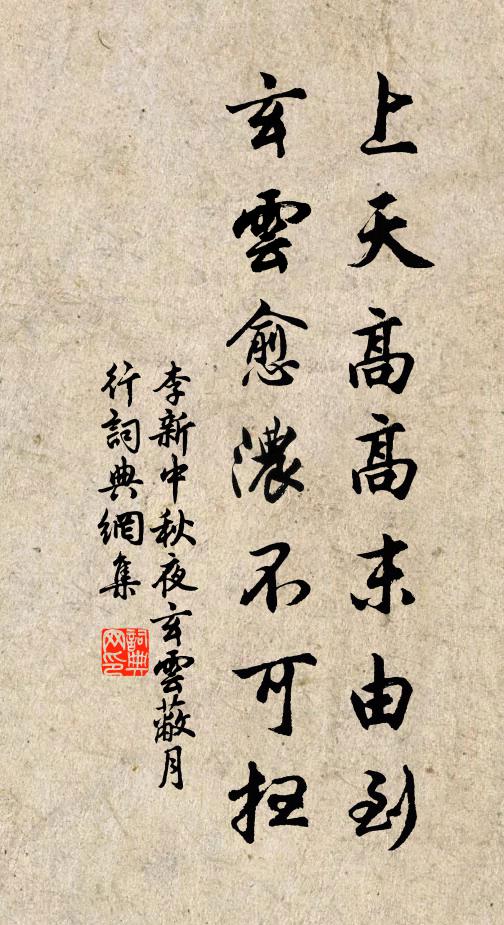 上天高高末由到
玄雲愈濃不可扫
李新中秋夜玄雲蔽月
行詞典網集
詞典
网印